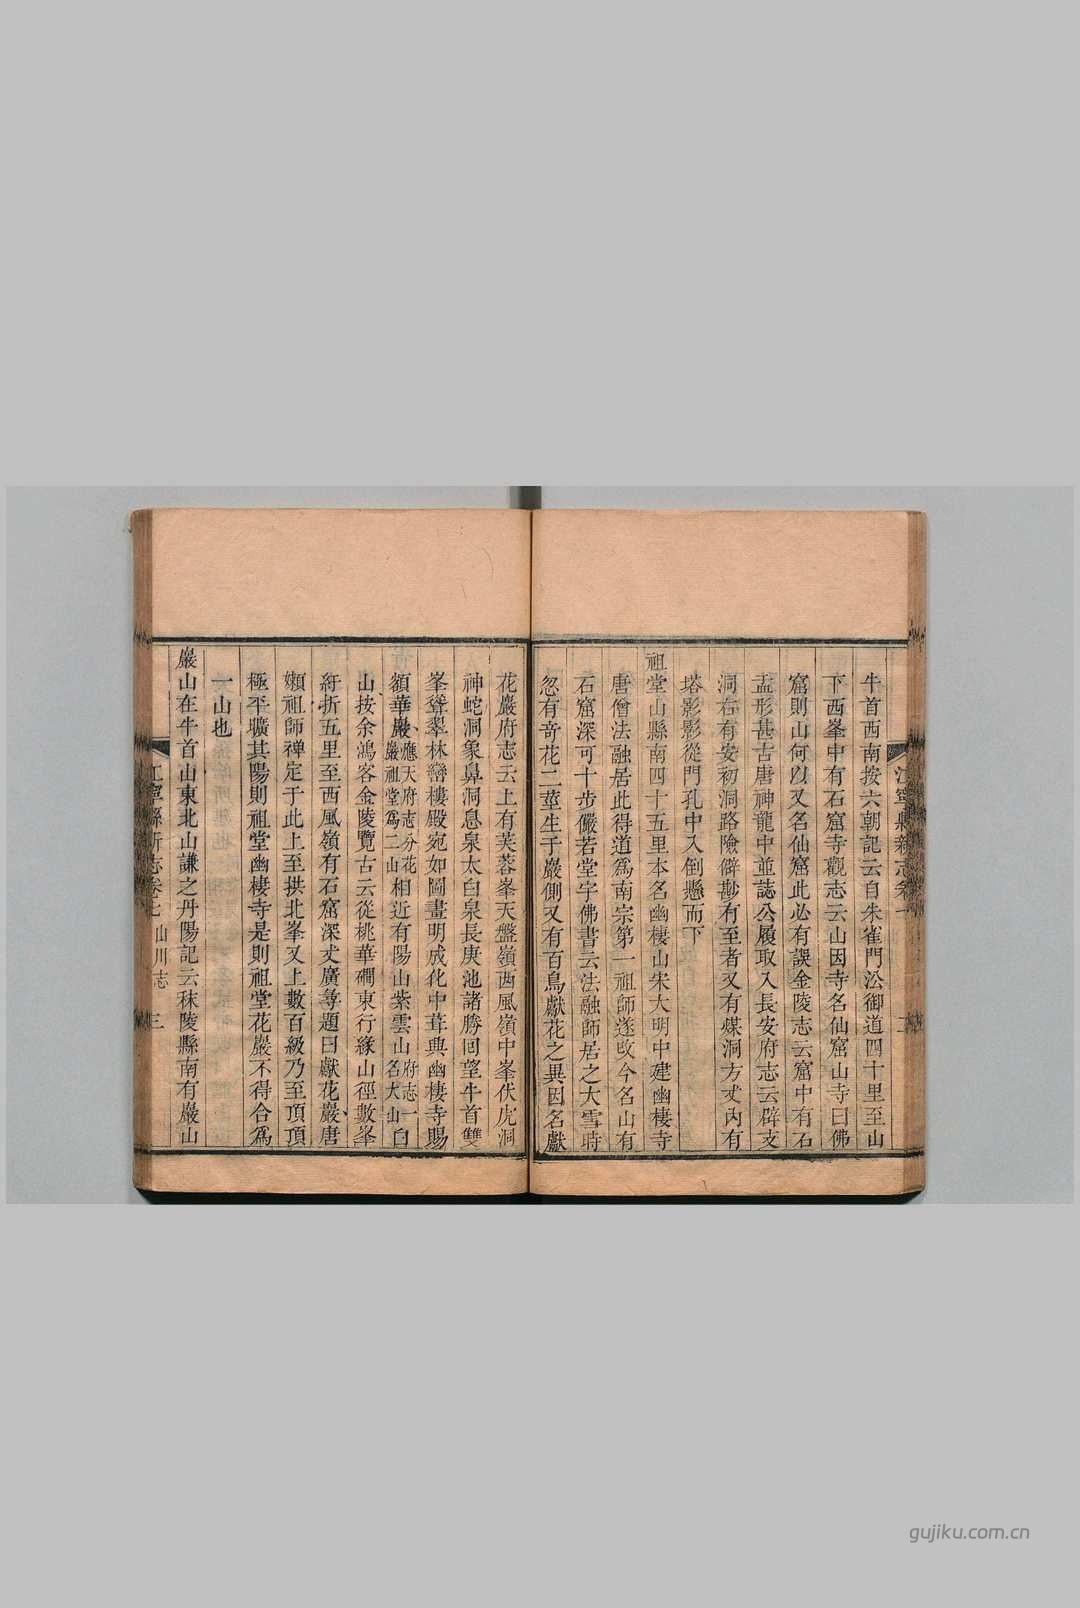 牛首西南按六朝記云自朱雀門㳂御道四十里至山
下西峯中有石窟寺觀志云山因寺名仙窟山寺曰佛
窟則山何以又名仙窟此必有誤金陵志云窟中有石
盂形甚古唐神龍中並誌公履取入長安府志云辟支
洞右有安初洞路險僻尠有至者又有煤洞方丈內有
塔影影從門孔中入倒懸而下
祖堂山縣南四十五里本名幽棲山宋大明中建幽棲寺
唐僧法融居此得道爲南宗第一祖師遂改今名山有
石窟深可十步儼若堂宇佛書云法融師居之大雪時
忽有竒花二莖生于巖側又有百鳥獻花之異因名獻
花巖府志云上有芙蓉峯天盤嶺西風嶺中峯伏虎洞
神蛇洞象鼻洞息泉太白泉長庚池諸勝囘望牛首雙
峯聳翠林巒樓殿宛如圖畫明成化中葺興幽棲寺賜
額華巖應天府志分花巖祖堂爲二山相近有陽山紫雲山府志一名大山白
山按余鴻客金陵覽古云從桃華磵東行緣山徑數峯
紆折五里至西風嶺有石窟深丈廣尋題曰獻花巖唐
嬾祖師禪定于此上至拱北峯又上數百級乃至頂頂
極平曠其陽則祖堂幽棲寺是則祖堂花巖不得合爲
一山也
巖山在牛首山東北山謙之丹陽記云秣陵縣南有巖山
江寧縣新志卷七 山川志 三
gujiku.com.cn